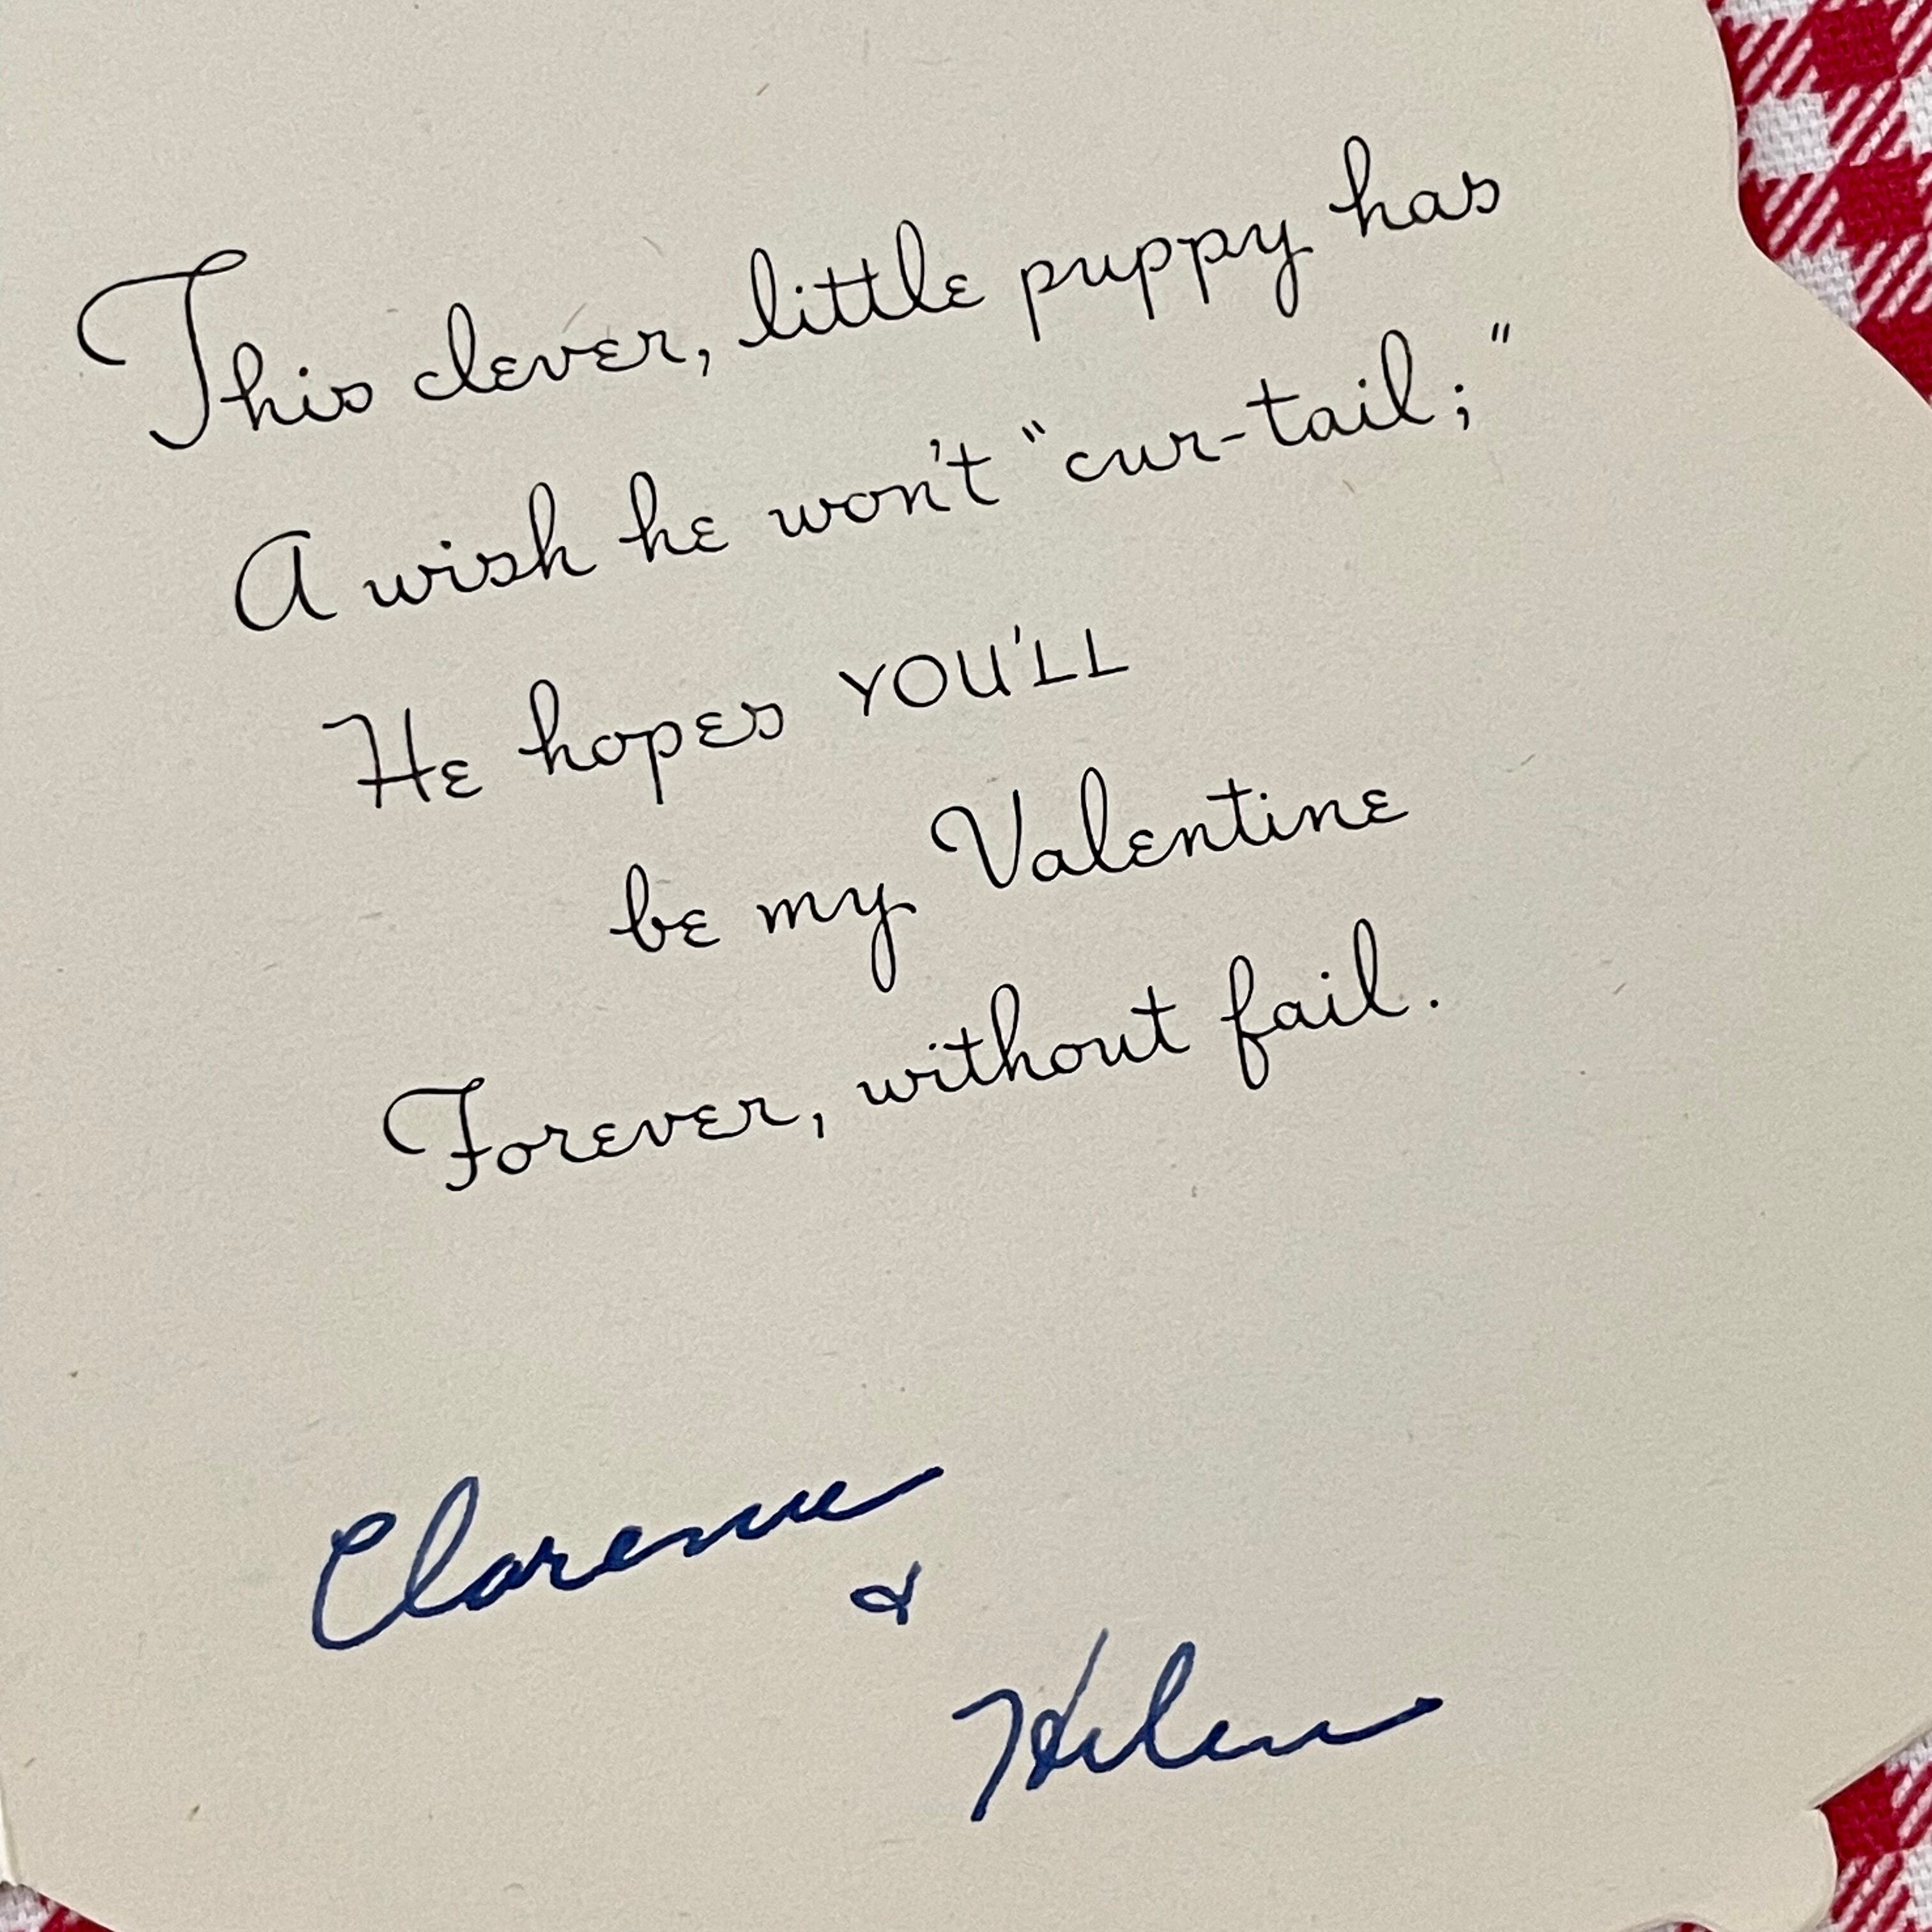 This clever, little puppy has
A wish he won't "cur-tail;"
He hopes YOU'LL
be my Valentine
Forever, without fail.
Clarence
&
Helen